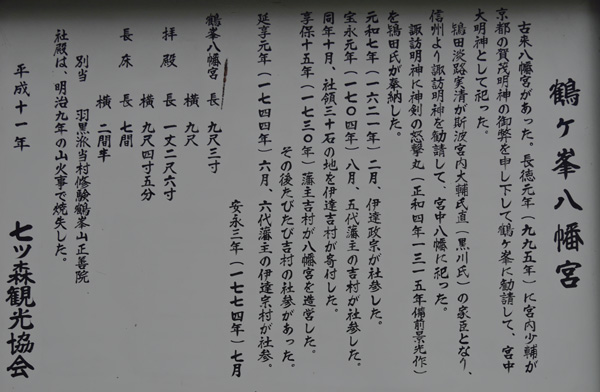 鶴ヶ峯八幡宮
古来八幡宮があった。長徳元年（九九五年）に宮内少輔が
京都の賀茂明神の御弊を申し下して鶴ヶ峯に勧請して、宮中
大明神として祀った。
鴇田淡路実清が斯波宮内大輔氏直（黒川氏）の家臣となり、
信州より諏訪明神を勧請して、宮中八幡に祀った。
諏訪明神に神剣の怒撃丸（正和四年一三一五年備前景光作）
を鴇田氏が奉納した。
元和七年（一六二一年）二月、伊達政宗が社参した。
宝永元年（一七〇四年）八月、五代藩主の吉村が社参した。
同年十月、社領三十石の地を伊達吉村が寄付した。
享保十五年（一七三〇年）藩主吉村が八幡宮を造営した。
その後たびたび吉村の社参があった。
延享元年（一七四四年）六月、六代藩主の伊達宗村が社参。
安永三年（一七七四年）七月
鶴峯八幡宮 長 九尺三寸
横 九尺
拝殿 長 一丈二尺六寸
横 九尺四寸五分
長床 長 七間
横 二間半
別当 羽黒派当村修験鶴峯山正善院
社殿は、明治九年の山火事で焼失した。
平成十一年
七ッ森観光協会